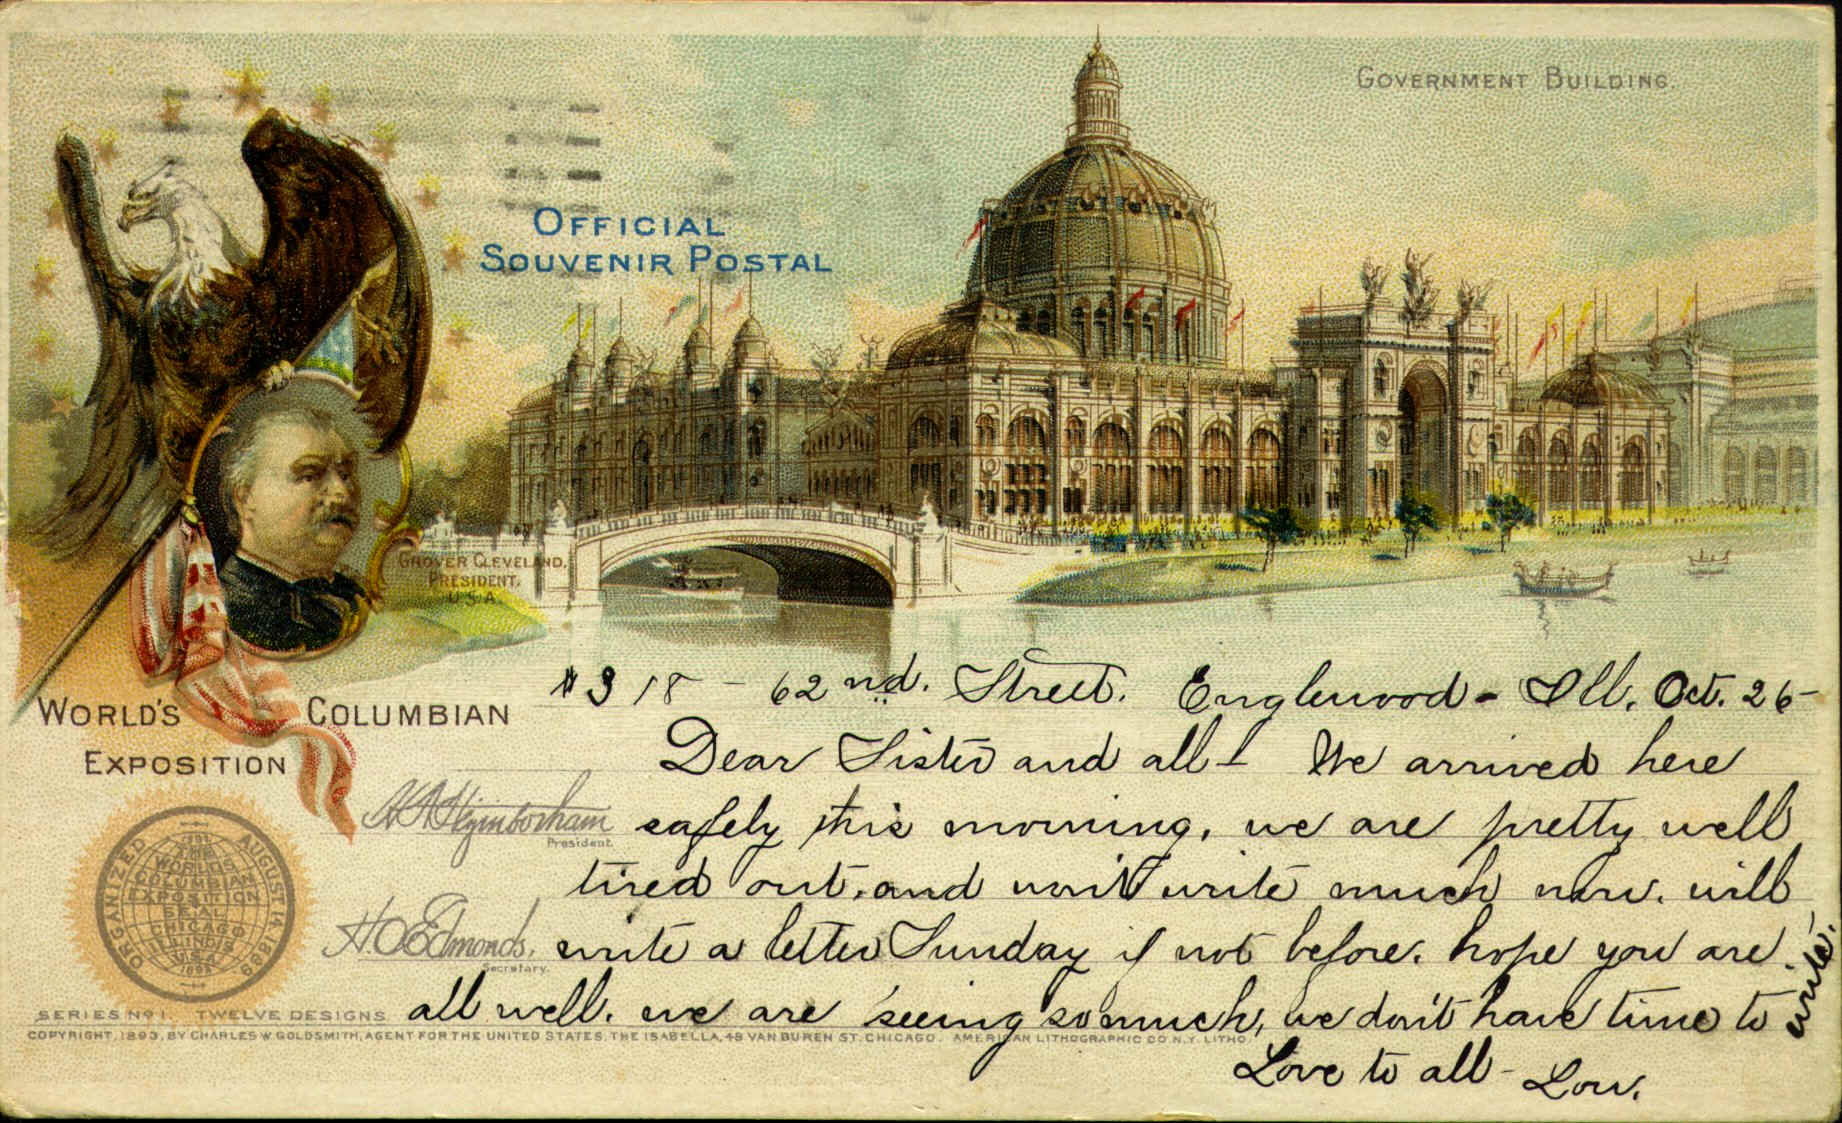 GOVERNMENT BUILDING.
OFFICIAL
SOUVENIR POSTAL
GROVER CLEVELAND,
PRESIDENT,
U.S.A.
WORLD'S COLUMBIAN
EXPOSITION
#318 - 62nd. Street. Englewood - Ill. Oct. 26 -
Dear Sister and all - We arrived here
safely this morning, we are pretty well
tired out, and won't write much now. will
write a letter Sunday if not before. hope you are
all well. we are seeing so much, we don't have time to write.
Love to all - Lou.
President.
H.O. Edmonds.
Secretary.
ORGANIZED AUGUST 14, 1889
THE
WORLD'S
COLUMBIAN
EXPOSITION
SEAL
CHICAGO
ILLINOIS
U.S.A.
1893
SERIES No 1. TWELVE DESIGNS
COPYRIGHT, 1893, BY CHARLES W GOLDSMITH, AGENT FOR THE UNITED STATES, THE ISABELLA, 48 VAN BUREN ST. CHICAGO. AMERICAN LITHOGRAPHIC CO N.Y. LITHO.